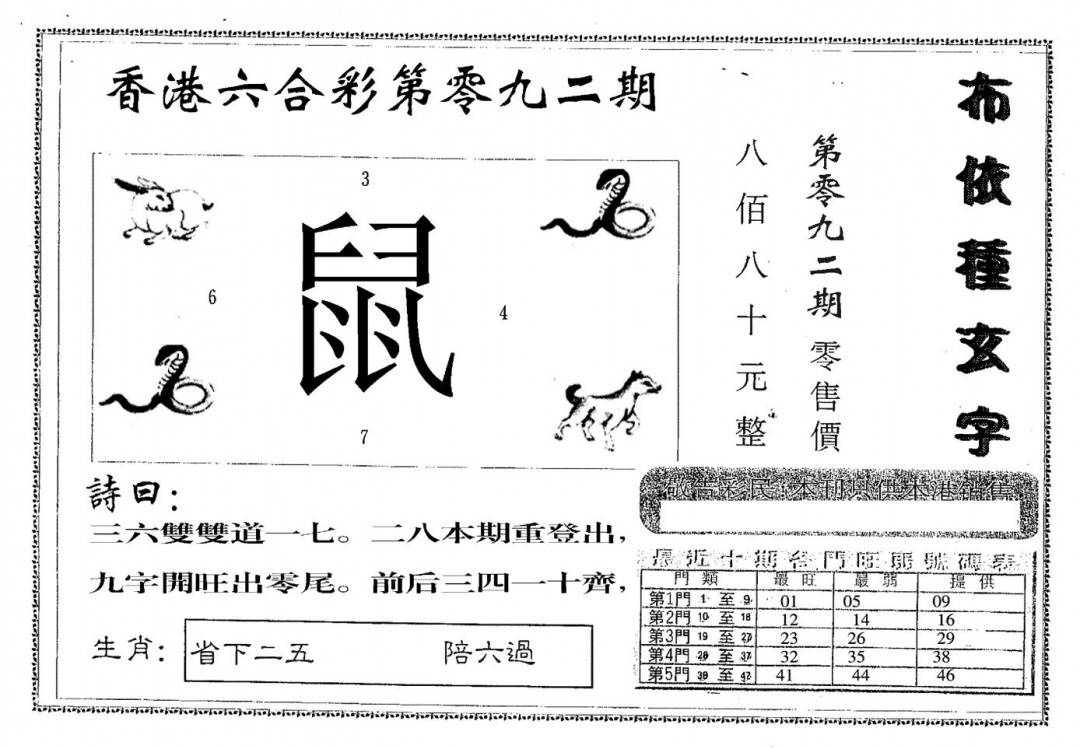 香港六合彩第零九二期
布依種玄字
第零九二期零售價
八佰八十元整
3
鼠
6
4
7
詩曰：
三六雙雙道一七。二八本期重登出，
九字開旺出零尾。前后三四一十齊，
生肖：省下二五 陪六過
敬告彩民：本刊只供本港銷售
最近十期各門旺弱號碼表
門類 最旺 最弱 提供
第1門 1 至 9 01 05 09
第2門 10 至 18 12 14 16
第3門 19 至 27 23 26 29
第4門 28 至 37 32 35 38
第5門 38 至 47 41 44 46